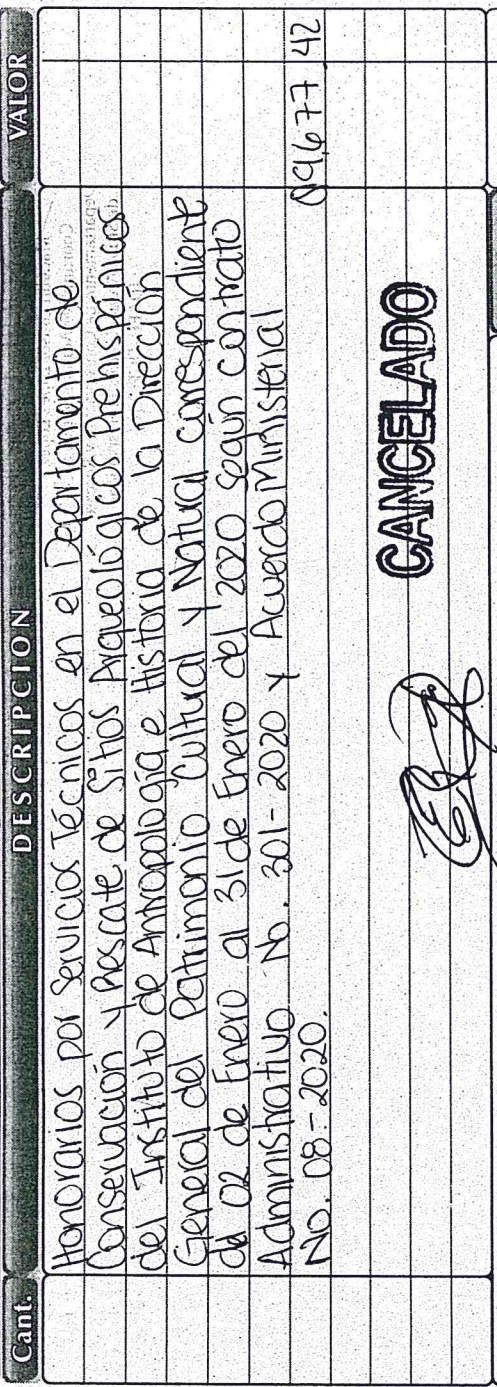 Cant. DESCRIPCION VALOR
Honorarios por Servicios Técnicos en el Departamento de
Conservación y Rescate de Sitios Arqueológicos Prehispánicos
del Instituto de Antropología e Historia de la Dirección
General del Patrimonio Cultural y Natural correspondiente
del 02 de Enero al 31 de Enero del 2020 según contrato
Administrativo No. 301-2020 y Acuerdo Ministerial
No. 08-2020. 9,677 42
CANCELADO